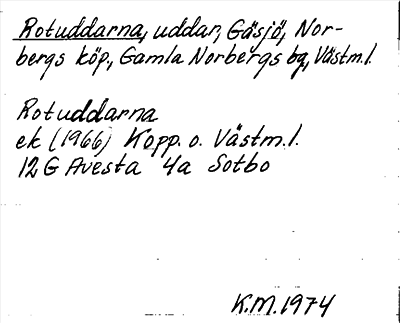 Rotuddarna, uddar, Gäsjö, Nor-
bergs köp., Gamla Norbergs bg, Västm.l.
Rotuddarna
ek (1966) Kopp. o. Västm.l.
12 G Avesta 4a Sotbo
K.M. 1974